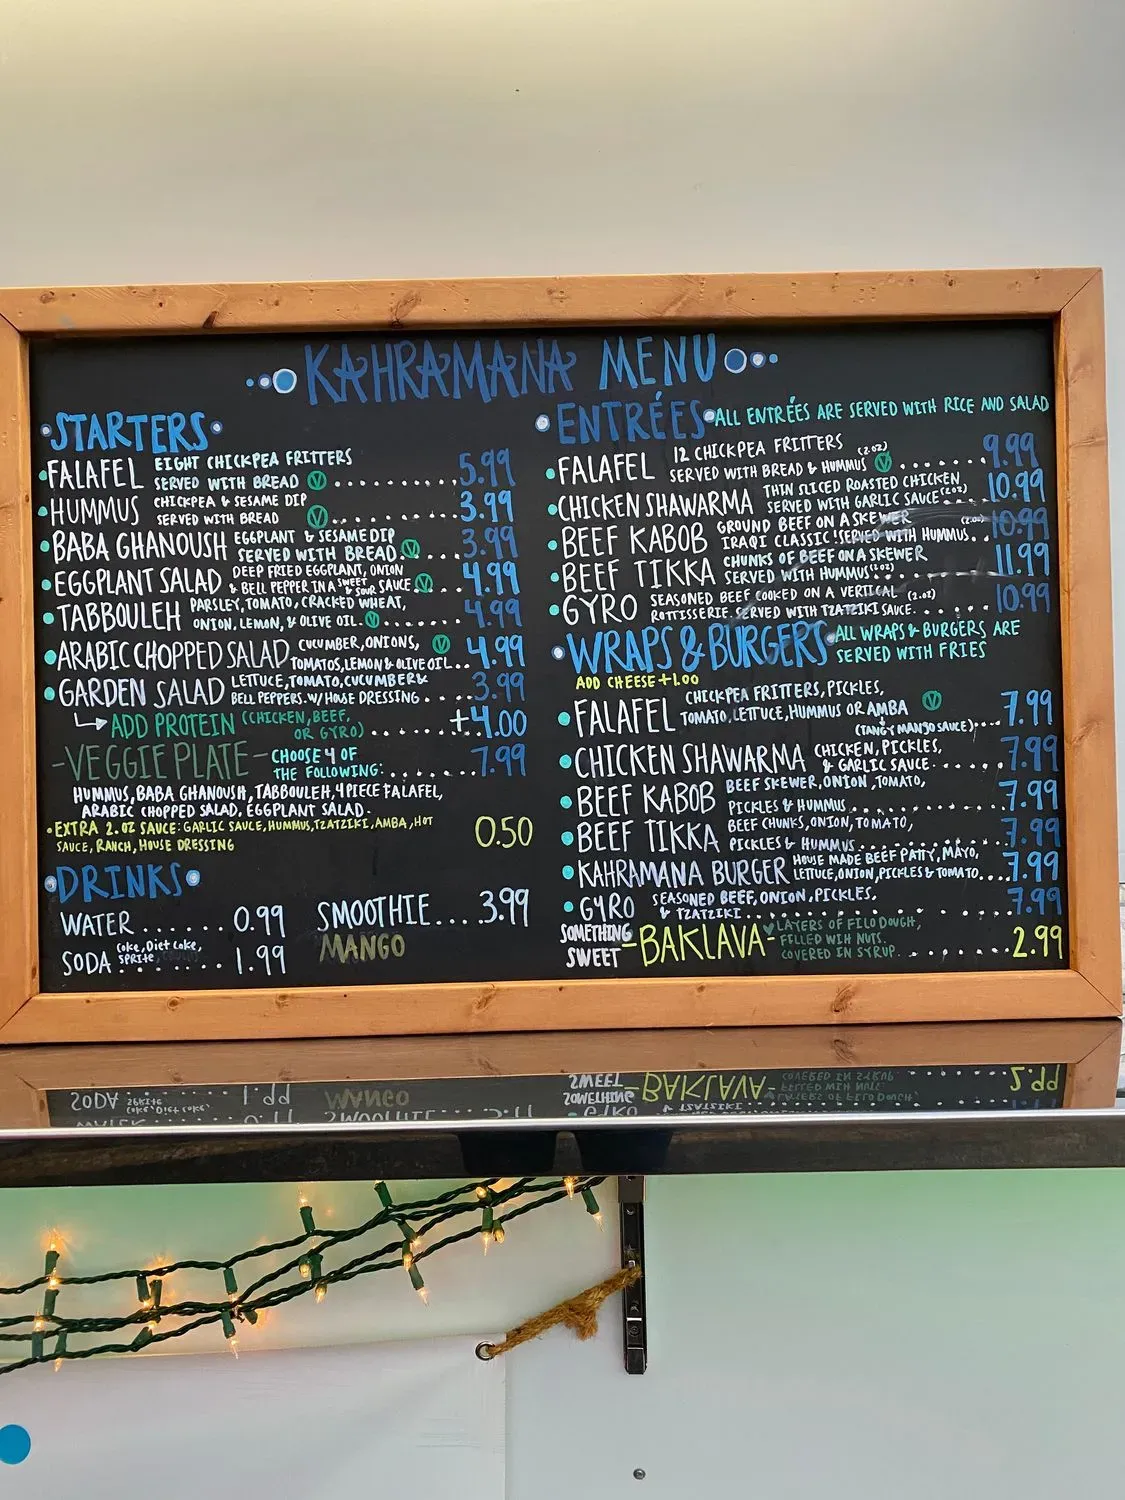 KAHRAMANA MENU
STARTERS
FALAFEL EIGHT CHICKPEA FRITTERS
SERVED WITH BREAD V 5.99
HUMMUS CHICKPEA & SESAME DIP
SERVED WITH BREAD V 3.99
BABA GHANOUSH EGGPLANT & SESAME DIP
SERVED WITH BREAD. V 3.99
EGGPLANT SALAD DEEP FRIED EGGPLANT, ONION
& BELL PEPPER IN A SWEET & SOUR SAUCE V 4.99
TABBOULEH PARSLEY, TOMATO, CRACKED WHEAT,
ONION, LEMON, & OLIVE OIL. V 4.99
ARABIC CHOPPED SALAD CUCUMBER, ONIONS, V
TOMATOS, LEMON & OLIVE OIL... 4.99
GARDEN SALAD LETTUCE, TOMATO, CUCUMBER &
BELL PEPPERS. W/ HOUSE DRESSING .... 3.99
ADD PROTEIN (CHICKEN, BEEF,
OR GYRO) ........ +4.00
-VEGGIE PLATE- CHOOSE 4 OF
THE FOLLOWING: ...... 7.99
HUMMUS, BABA GHANOUSH, TABBOULEH, 4 PIECE FALAFEL,
ARABIC CHOPPED SALAD, EGGPLANT SALAD.
• EXTRA 2. OZ SAUCE: GARLIC SAUCE, HUMMUS, TZATZIKI, AMBA, HOT
SAUCE, RANCH, HOUSE DRESSING 0.50
DRINKS
WATER ...... 0.99
SODA Coke, Diet Coke,
Sprite, ...... 1.99
SMOOTHIE.... 3.99
MANGO
ENTRÉES ALL ENTRÉES ARE SERVED WITH RICE AND SALAD
FALAFEL 12 CHICKPEA FRITTERS
SERVED WITH BREAD & HUMMUS (2 OZ) V ....... 9.99
CHICKEN SHAWARMA THIN SLICED ROASTED CHICKEN
SERVED WITH GARLIC SAUCE (2 OZ) 10.99
BEEF KABOB GROUND BEEF ON A SKEWER
IRAQI CLASSIC! SERVED WITH HUMMUS.. (2.OZ) 10.99
BEEF TIKKA CHUNKS OF BEEF ON A SKEWER
SERVED WITH HUMMUS (2 OZ) ........ 11.99
GYRO SEASONED BEEF COOKED ON A VERTICAL (2.OZ)
ROTTISSERIE. SERVED WITH TZATZIKI SAUCE. ..... 10.99
WRAPS & BURGERS ALL WRAPS & BURGERS ARE
SERVED WITH FRIES
ADD CHEESE +1.00
FALAFEL CHICKPEA FRITTERS, PICKLES,
TOMATO, LETTUCE, HUMMUS OR AMBA V
(TANGY MANGO SAUCE).... 7.99
CHICKEN SHAWARMA CHICKEN, PICKLES,
& GARLIC SAUCE...... 7.99
BEEF KABOB BEEF SKEWER, ONION, TOMATO,
PICKLES & HUMMUS ........... 7.99
BEEF TIKKA BEEF CHUNKS, ONION, TOMATO,
PICKLES & HUMMUS ........... 7.99
KAHRAMANA BURGER HOUSE MADE BEEF PATTY, MAYO,
LETTUCE, ONION, PICKLES & TOMATO.... 7.99
GYRO SEASONED BEEF, ONION, PICKLES,
& TZATZIKI ............ 7.99
SOMETHING
SWEET -BAKLAVA- LAYERS OF FILO DOUGH,
FILLED WIH NUTS.
COVERED IN SYRUP. ........ 2.99